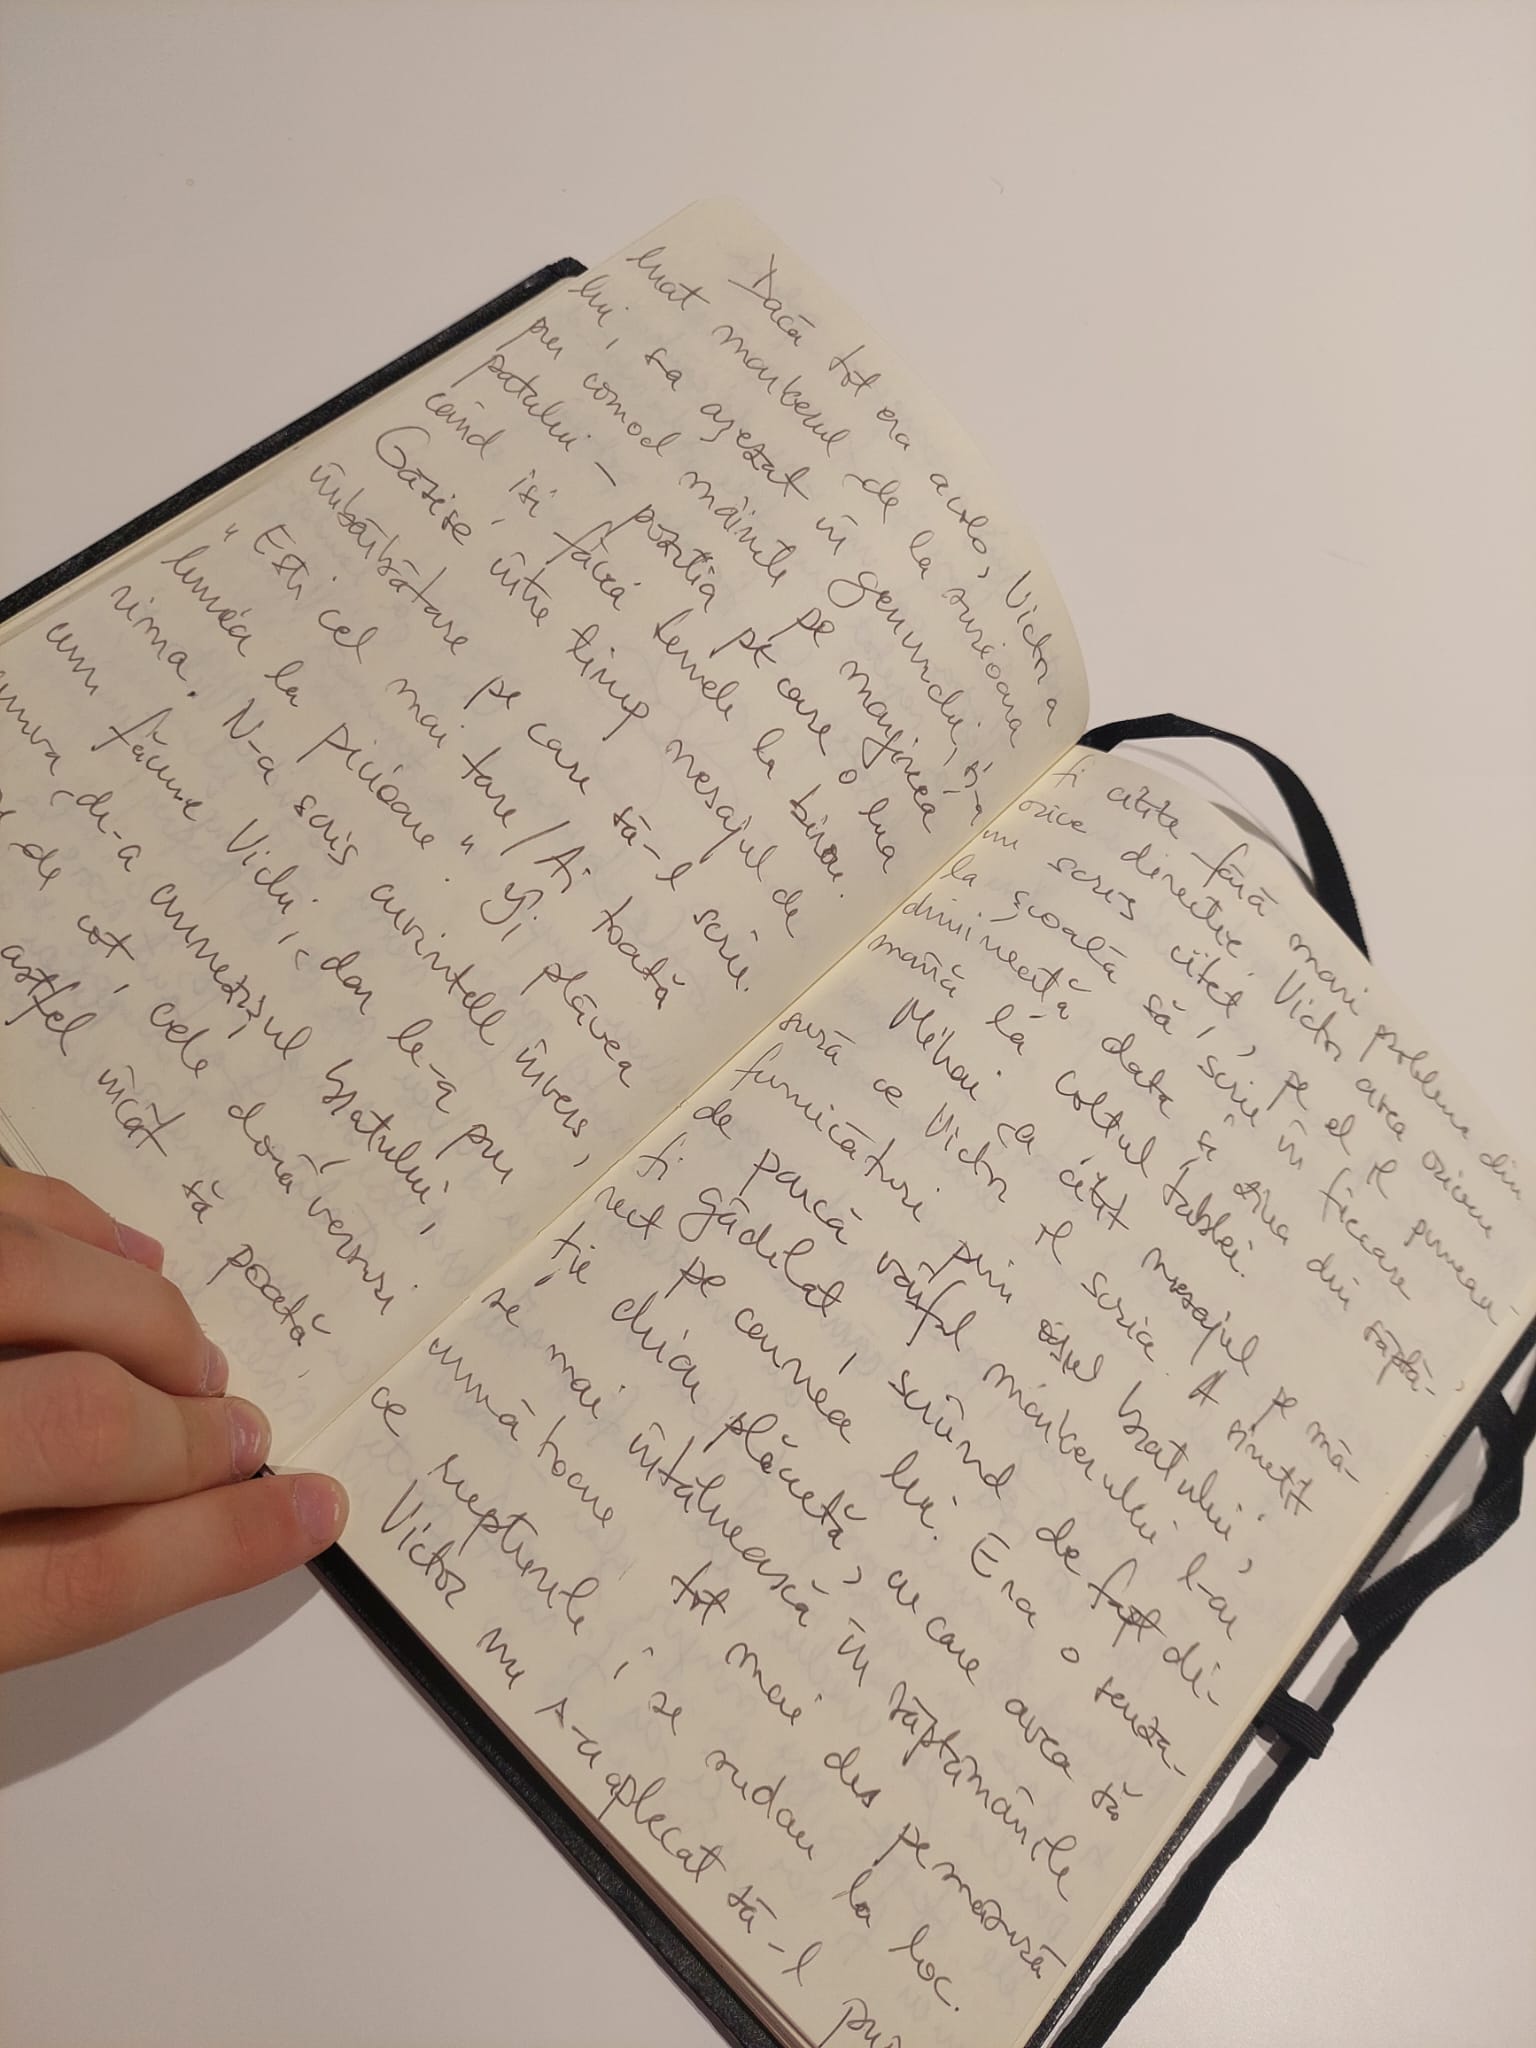 Dacă tot era acolo, Victor a
luat markerul de la surioara
lui, s-a așezat în genunchi, și-a
pus comod mâinile pe marginea
patului – poziția pe care o lua
când își făcea temele la birou.
Găsise, între timp mesajul de
îmbărbătare pe care să-l scrie.
„Ești cel mai tare / Ai toată
lumea la picioare." Îi plăcea
rima. N-a scris cuvintele invers,
cum făcuse Vichi, dar le-a pus
cumva de-a curmezișul brațului,
de cot, cele două versuri
astfel încât să poată
fi citite fără mari probleme din
orice direcție. Victor avea oricum
un scris citeț, pe el îl puneau
la școală să scrie în fiecare
dimineață data și ziua din săptă-
mână la colțul tablei.
Mihai a citit mesajul pe mă-
sură ce Victor îl scria. A simțit
furnicături prin osul brațului,
de parcă vârful markerului l-ar
fi gâdilat, scriind de fapt di-
rect pe carnea lui. Era o senza-
ție chiar plăcută, cu care avea să
se mai întâlnească în săptămânile
următoare tot mai des pe măsură
ce rupturile i se sudau la loc.
Victor nu s-a aplecat să-l